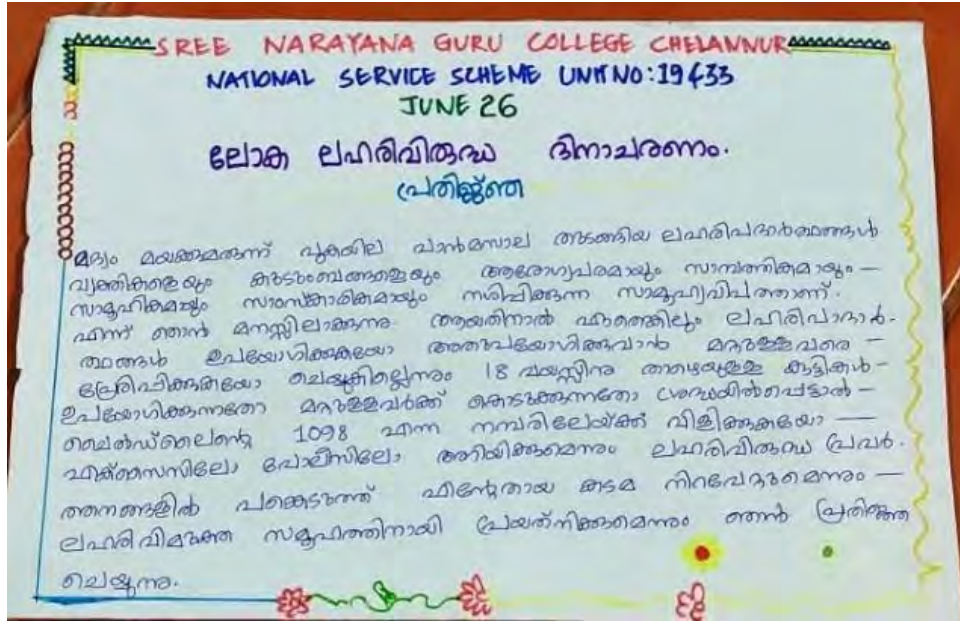 SREE NARAYANA GURU COLLEGE CHELANNUR
NATIONAL SERVICE SCHEME UNIT NO: 19433
JUNE 26
ലോക ലഹരിവിരുദ്ധ ദിനാചരണം.
പ്രതിജ്ഞ
മദ്യം മയക്കുമരുന്ന് പുകയില പാൻമസാല തുടങ്ങിയ ലഹരിപദാർത്ഥങ്ങൾ
വ്യക്തികളെയും കുടുംബങ്ങളെയും ആരോഗ്യപരമായും സാമ്പത്തികമായും —
സാമൂഹികമായും സാംസ്കാരികമായും നശിപ്പിക്കുന്ന സാമൂഹ്യവിപത്താണ്.
എന്ന് ഞാൻ മനസ്സിലാക്കുന്നു. ആയതിനാൽ ഏതെങ്കിലും ലഹരിപദാർ-
ത്ഥങ്ങൾ ഉപയോഗിക്കുകയോ അതുപയോഗിക്കുവാൻ മറ്റുള്ളവരെ —
പ്രേരിപ്പിക്കുകയോ ചെയ്യുകില്ലെന്നും 18 വയസ്സിനു താഴെയുള്ള കുട്ടികൾ —
ഉപയോഗിക്കുന്നതോ മറ്റുള്ളവർക്ക് കൊടുക്കുന്നതോ ശ്രദ്ധയിൽപ്പെട്ടാൽ —
ചൈൽഡ്‌ലൈന്റെ 1098 എന്ന നമ്പരിലേയ്ക്ക് വിളിക്കുകയോ —
എക്സൈസിലോ പോലീസിലോ അറിയിക്കുമെന്നും ലഹരിവിരുദ്ധ പ്രവർ-
ത്തനങ്ങളിൽ പങ്കെടുത്ത് എന്റേതായ കടമ നിറവേറ്റുമെന്നും —
ലഹരി വിമുക്ത സമൂഹത്തിനായി പ്രയത്നിക്കുമെന്നും ഞാൻ പ്രതിജ്ഞ
ചെയ്യുന്നു.